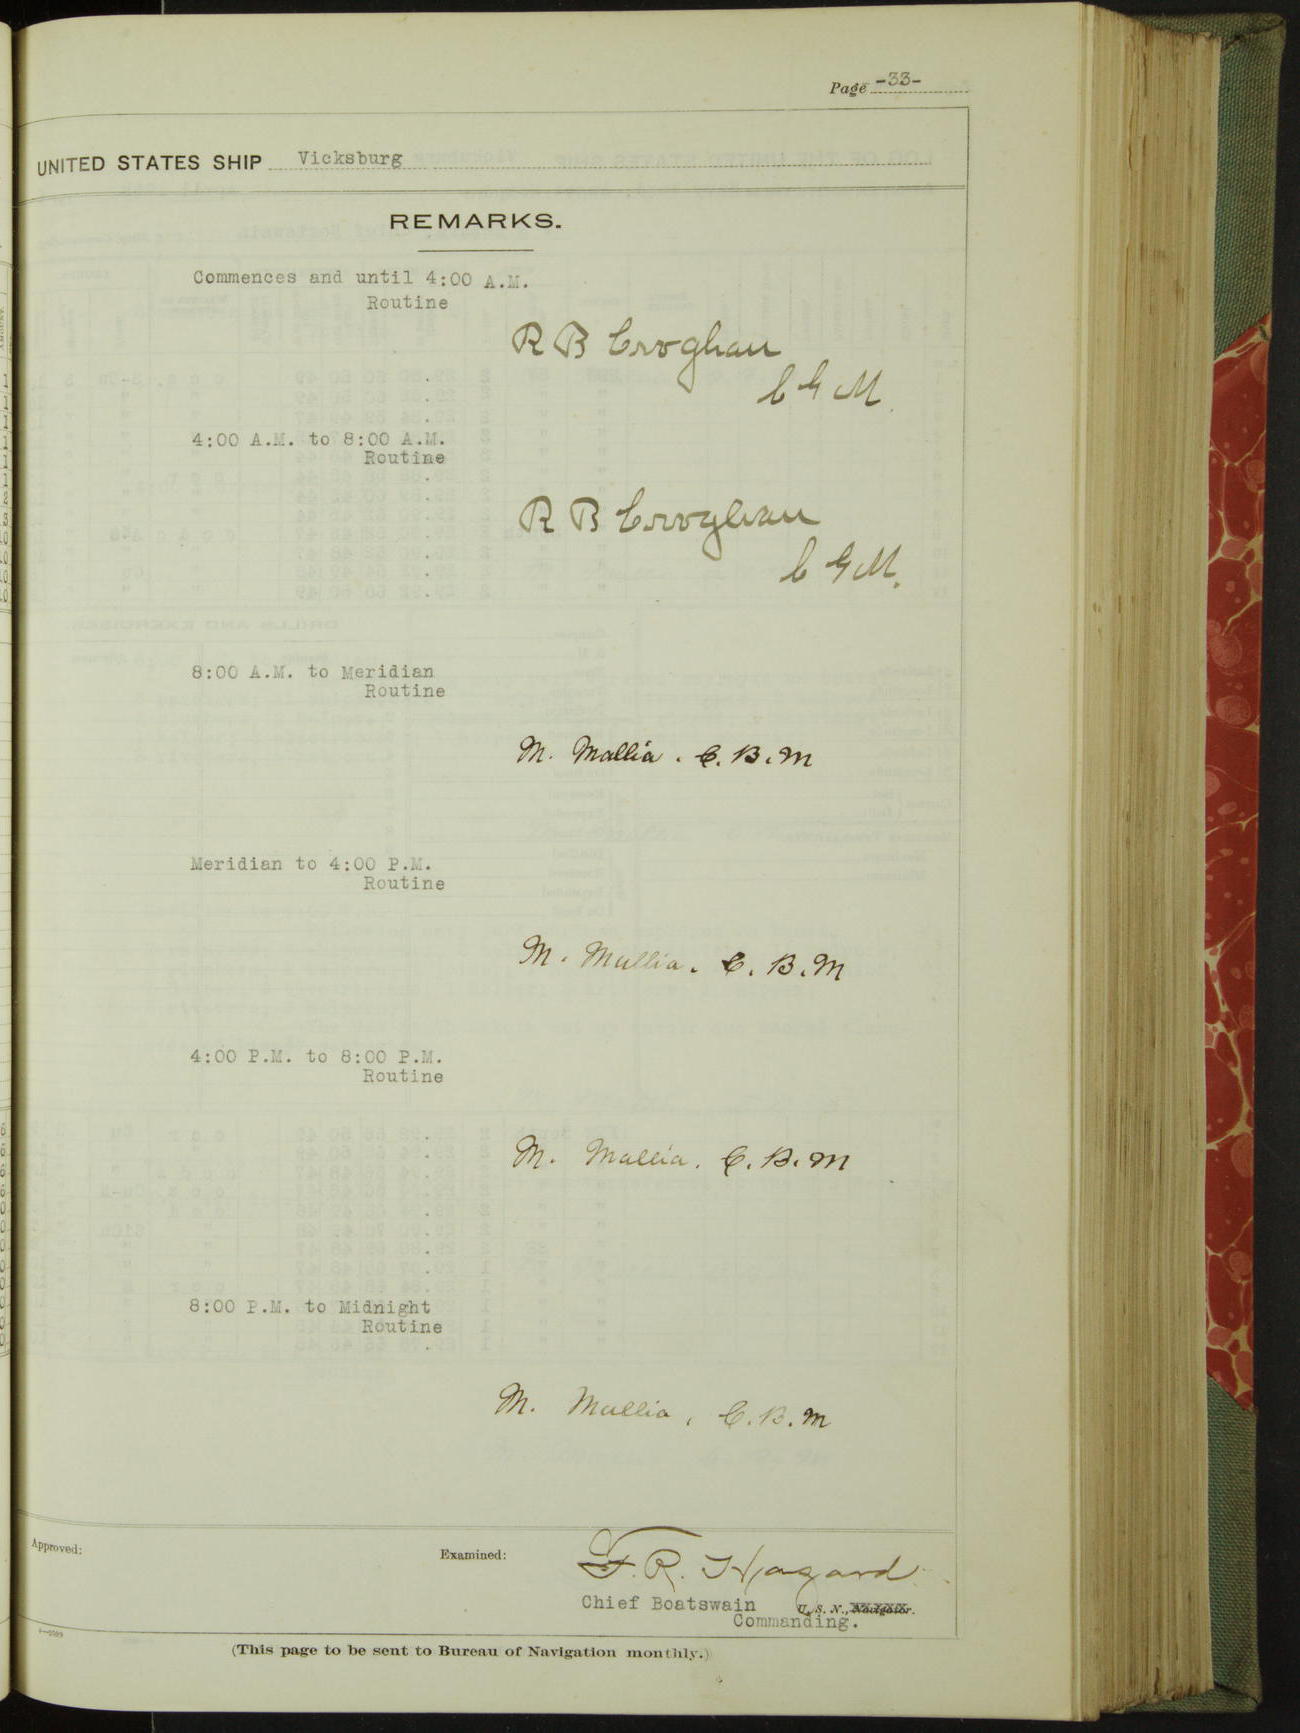 Page -33-
UNITED STATES SHIP Vicksburg
REMARKS.
Commences and until 4:00 A.M.
Routine
R B Croghan
C G M.
4:00 A.M. to 8:00 A.M.
Routine
R B Croghan
C G M.
8:00 A.M. to Meridian
Routine
M. Mallia. C. B. M
Meridian to 4:00 P.M.
Routine
M. Mallia. C. B. M
4:00 P.M. to 8:00 P.M.
Routine
M. Mallia. C. B. M
8:00 P.M. to Midnight
Routine
M. Mallia, C. B. M
Approved:
Examined:
F. R. Hazard
Chief Boatswain U. S. N., Navigator.
Commanding.
(This page to be sent to Bureau of Navigation monthly.)